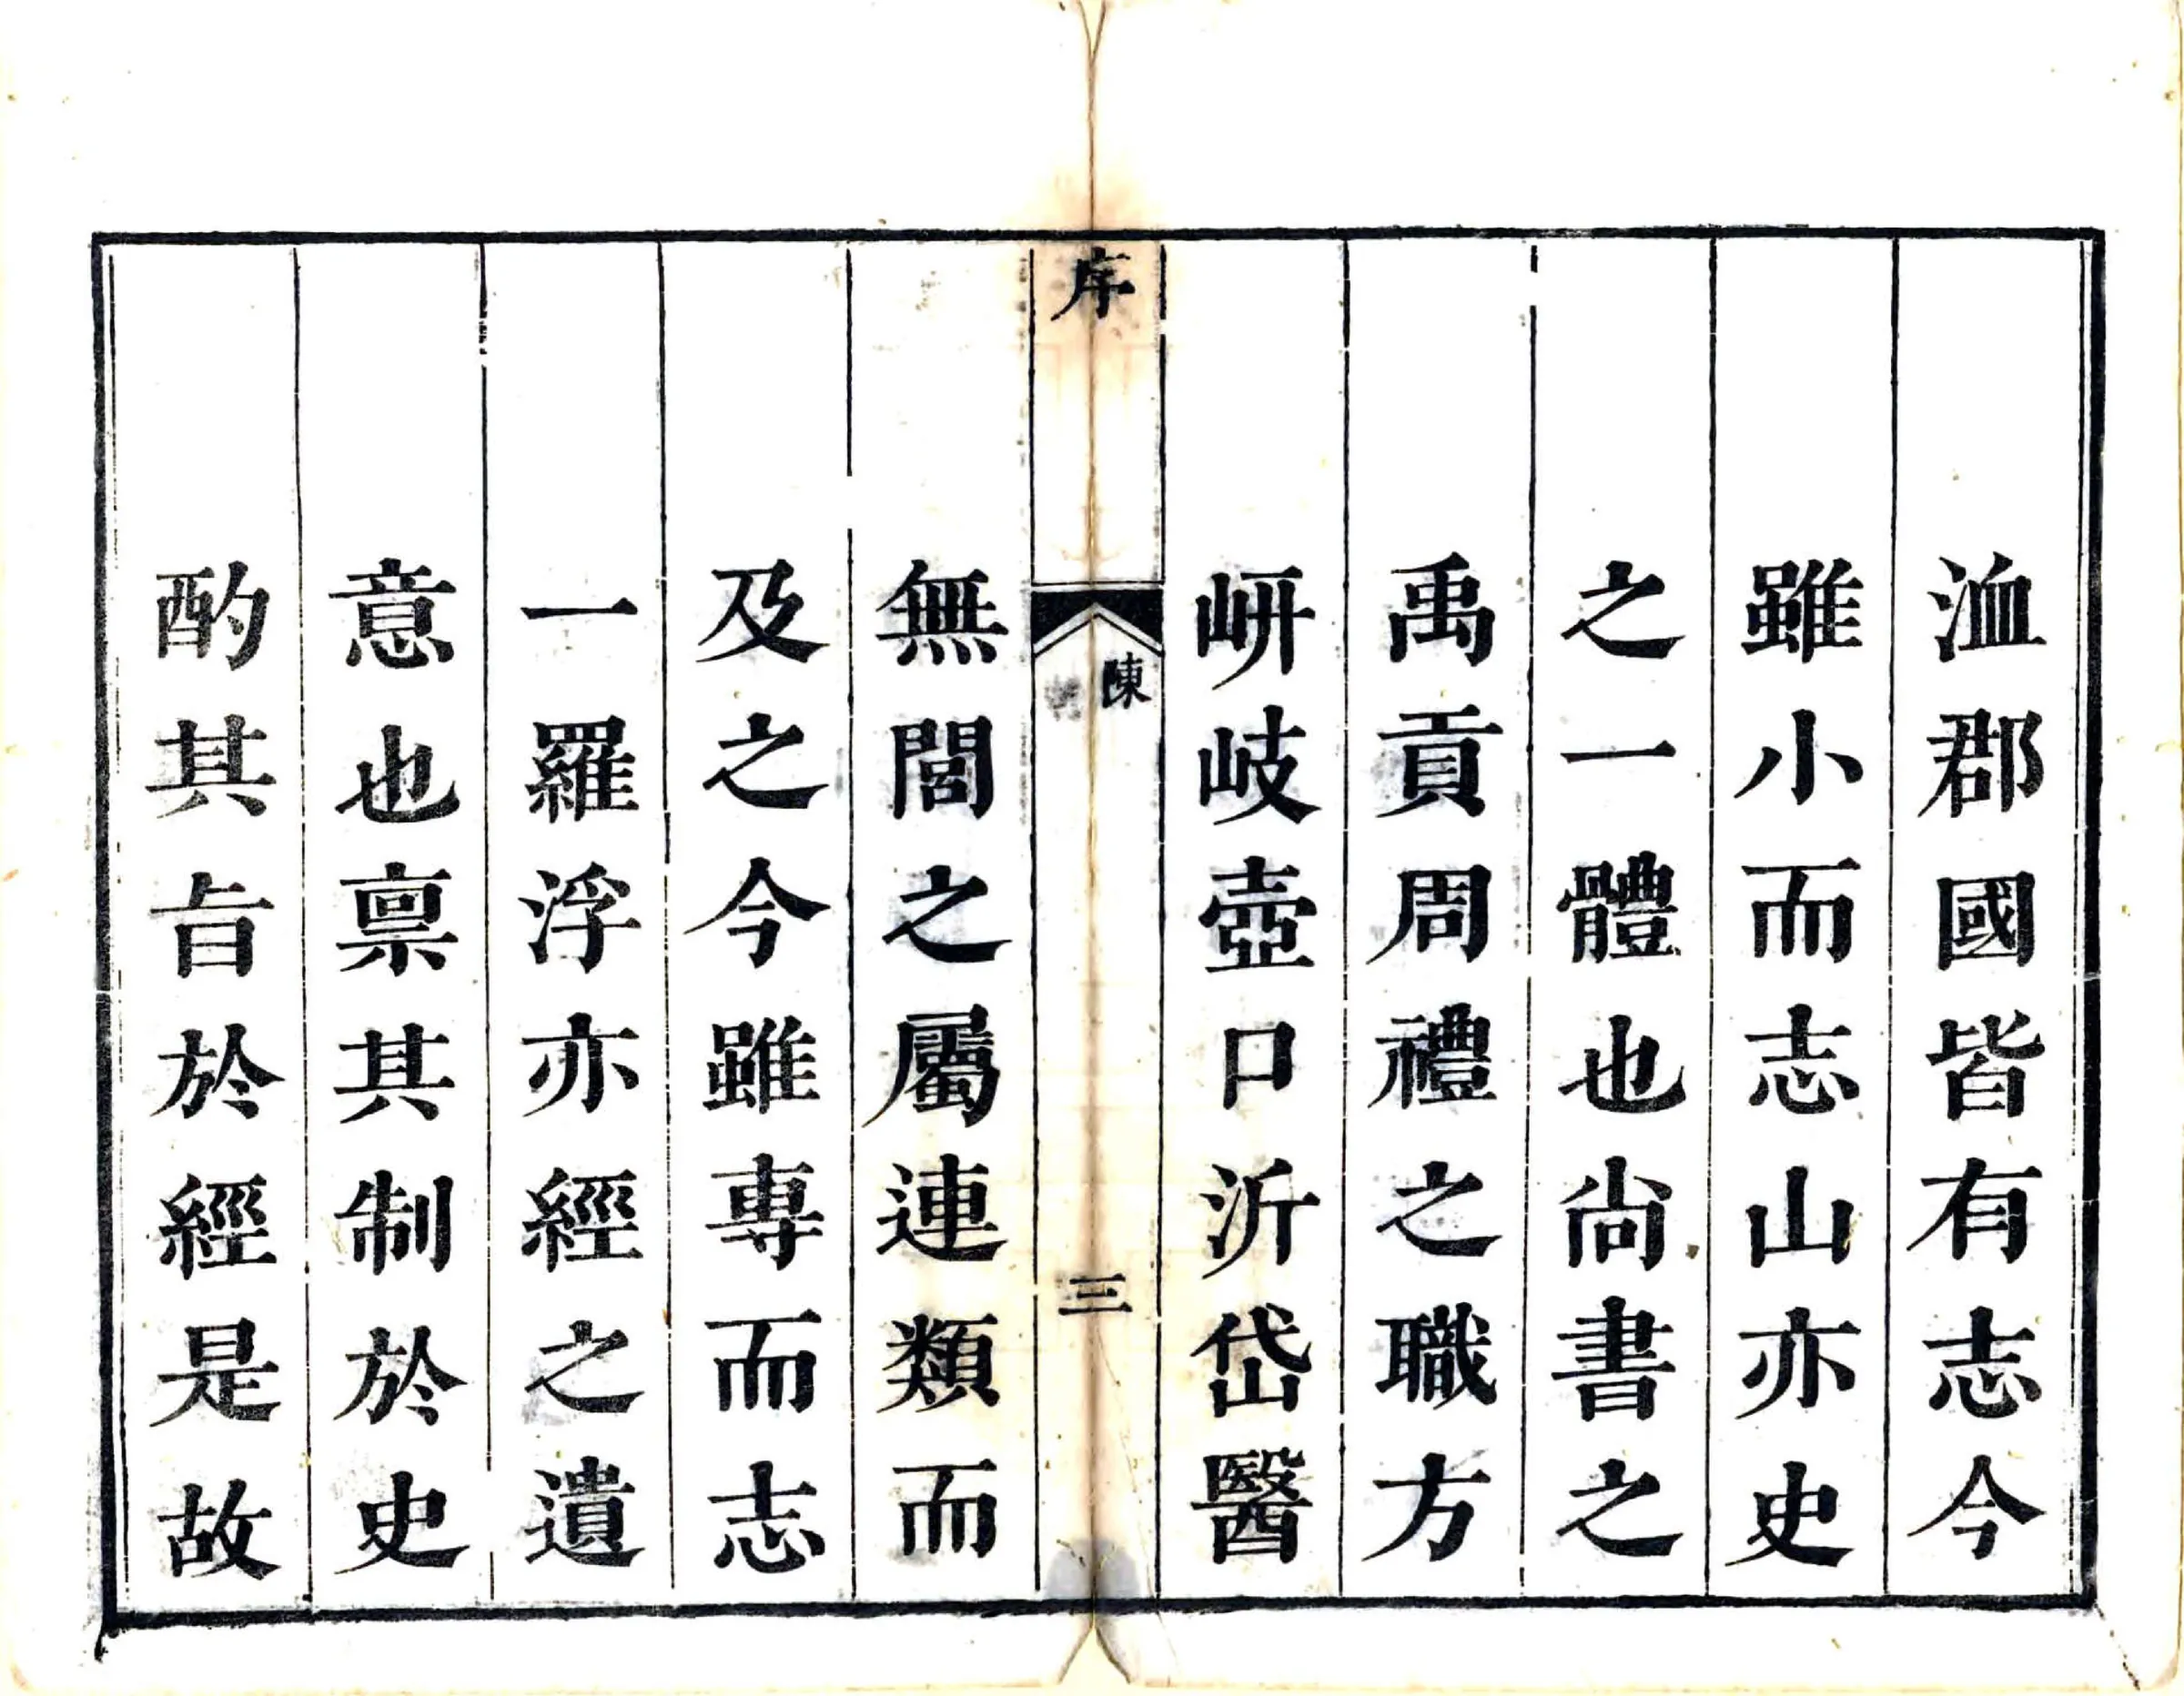 洫郡國皆有志今
雖小而志山亦史
之一體也尚書之
禹貢周禮之職方
岍岐壺口沂岱醫
序
陳
三
無閭之屬連類而
及之今雖專而志
一羅浮亦經之遺
意也稟其制於史
酌其旨於經是故